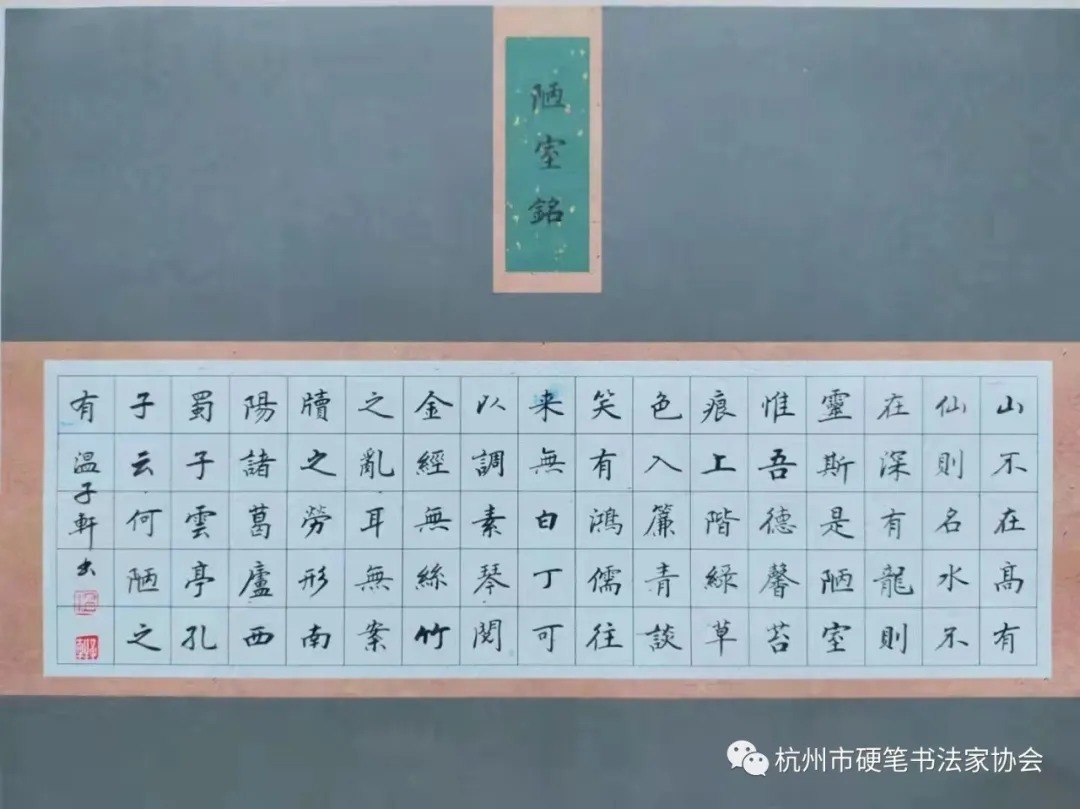 陋室銘
山不在髙有
仙則名水不
在深有龍則
靈斯是陋室
惟吾德馨苔
痕上階綠草
色入簾青談
笑有鴻儒往
来無白丁可
以調素琴閱
金經無絲竹
之亂耳無案
牘之勞形南
陽諸葛廬西
蜀子雲亭孔
子云何陋之
有 温子軒书
杭州市硬笔书法家协会